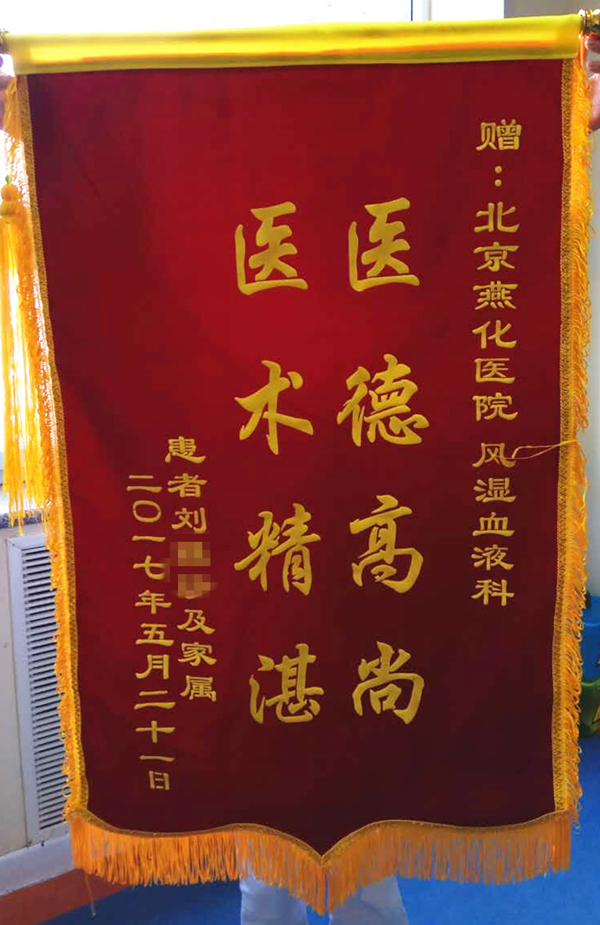 赠：北京燕化医院 风湿血液科
医德高尚
医术精湛
患者刘及家属
二〇一七年五月二十一日